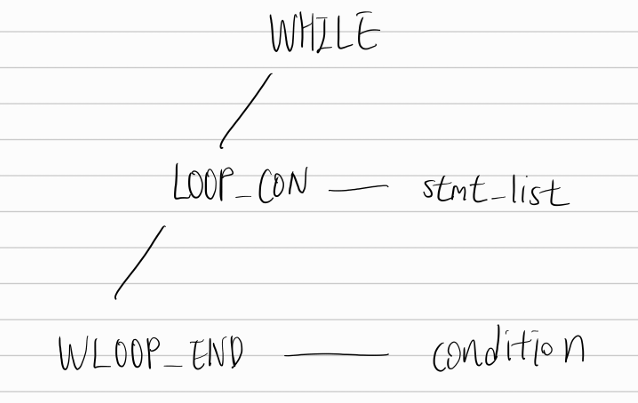 WHILE
LOOP_CON stmt_list
WLOOP_END condition